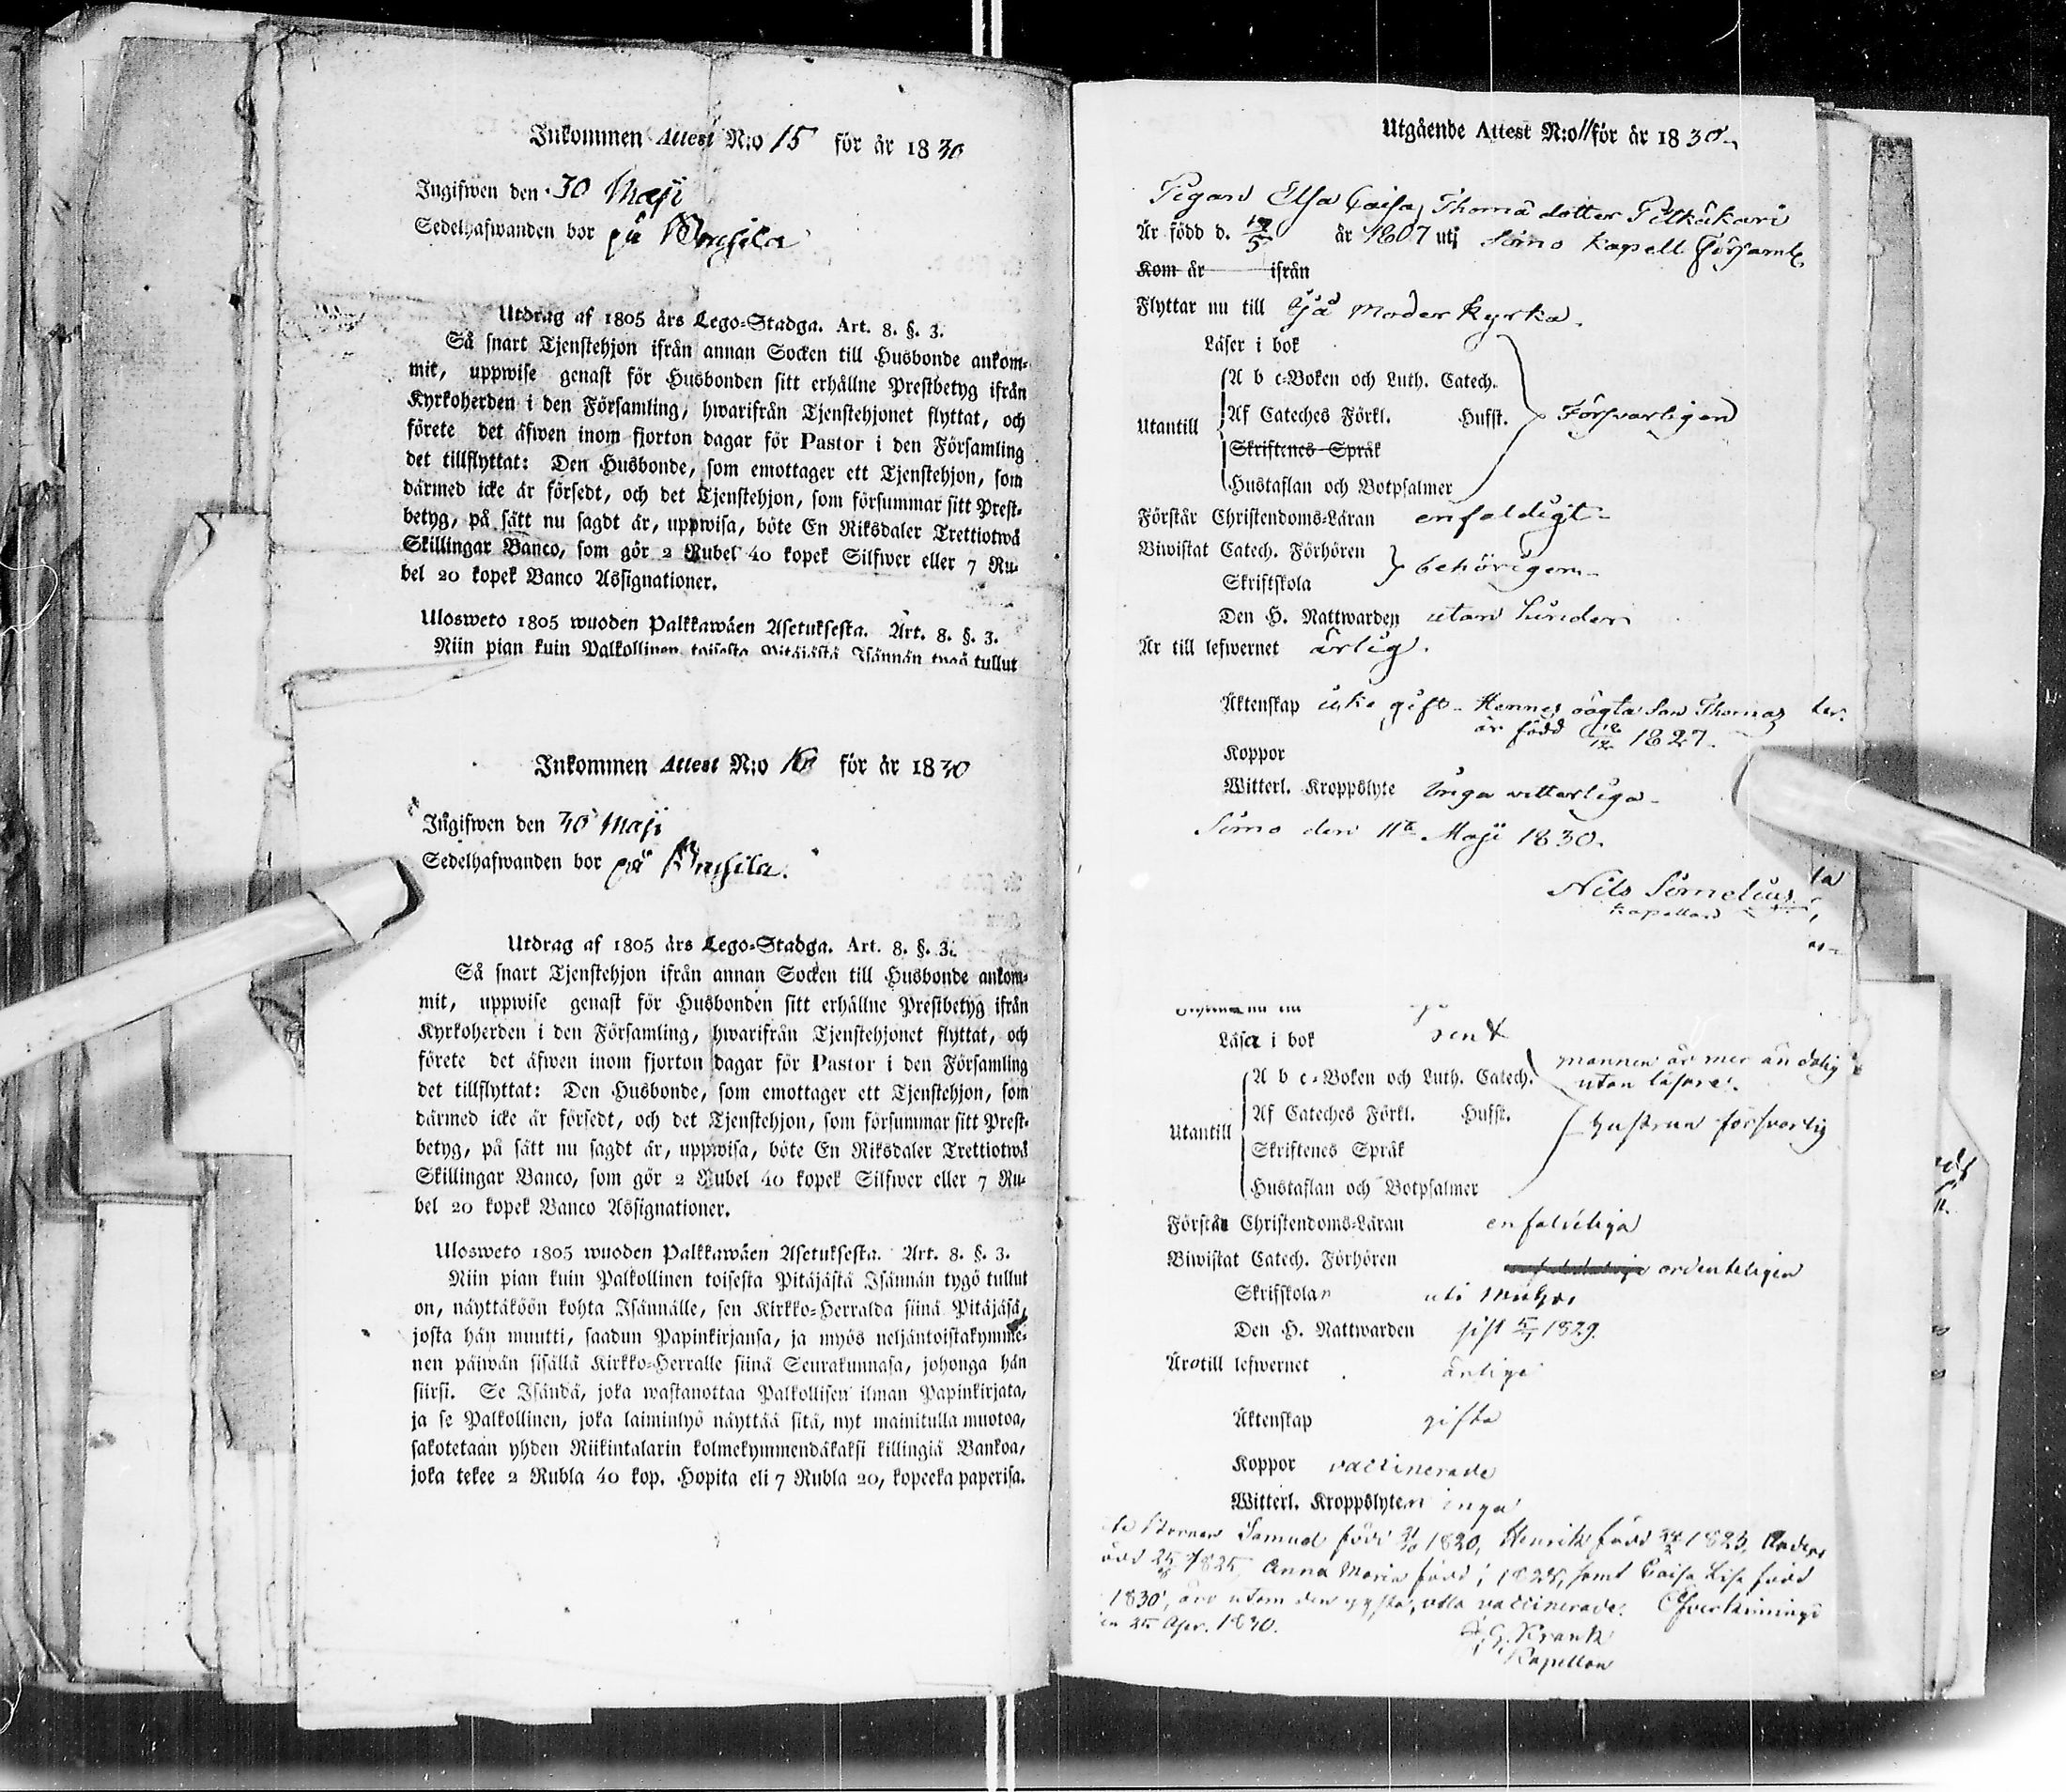 Inkommen Attest N:o 15 för år 1830
Ingifwen den 30 Maji
Sedelhafwanden bor på
Utdrag af 1805 års Lego-Stadga. Art. 8. §. 3.
Så snart Tjenstehjon ifrån annan Socken till Husbonde ankom-
mit, uppwise genast för Husbonden sitt erhållne Prestbetyg ifrån
Kyrkoherden i den Församling, hwarifrån Tjenstehjonet flyttat, och
förete det äfwen inom fjorton dagar för Pastor i den Församling
det tillflyttat: Den Husbonde, som emottager ett Tjenstehjon, som
därmed icke är försedt, och det Tjenstehjon, som försummar sitt Prest-
betyg, på sätt nu sagdt är, uppwisa, böte En Riksdaler Trettiotwå
Skillingar Banco, som gör 2 Rubel 40 kopek Silfwer eller 7 Ru-
bel 20 kopek Banco Assignationer.
Ulosweto 1805 wuoden Palkkawäen Asetuksesta. Art. 8. §. 3.
Niin pian kuin Palkollinen toisesta Pitäjästä Isännän tygö tullut
Inkommen Attest N:o 16 för år 1830
Ingifwen den 30 Maji
Sedelhafwanden bor på
Utdrag af 1805 års Lego-Stadga. Art. 8. §. 3.
Så snart Tjenstehjon ifrån annan Socken till Husbonde ankom-
mit, uppwise genast för Husbonden sitt erhållne Prestbetyg ifrån
Kyrkoherden i den Församling, hwarifrån Tjenstehjonet flyttat, och
förete det äfwen inom fjorton dagar för Pastor i den Församling
det tillflyttat: Den Husbonde, som emottager ett Tjenstehjon, som
därmed icke är försedt, och det Tjenstehjon, som försummar sitt Prest-
betyg, på sätt nu sagdt är, uppwisa, böte En Riksdaler Trettiotwå
Skillingar Banco, som gör 2 Rubel 40 kopek Silfwer eller 7 Ru-
bel 20 kopek Banco Assignationer.
Ulosweto 1805 wuoden Palkkawäen Asetuksesta. Art. 8. §. 3.
Niin pian kuin Palkollinen toisesta Pitäjästä Isännän tygö tullut
on, näyttäköön kohta Isännälle, sen Kirkko-Herralda siinä Pitäjäsä,
josta hän muutti, saadun Papinkirjansa, ja myös neljäntoistakymme-
nen päiwän sisällä Kirkko-Herralle siinä Seurakunnasa, johonga hän
siirsi. Se Isändä, joka wastanottaa Palkollisen ilman Papinkirjata,
ja se Palkollinen, joka laiminlyö näyttää sitä, nyt mainitulla muotoa,
sakotetaan yhden Riikintalarin kolmekymmendäkaksi killingiä Bankoa,
joka tekee 2 Rubla 40 kop. Hopita eli 7 Rubla 20, kopecka paperisa.
Utgående Attest N:o 11 för år 1830.
Pigan Elsa Caisa Thomæ dotter Pitkäkari
Är född d. 19/5 år 1807 uti Simo Kapell Församl.
Kom år ifrån
Flyttar nu till Ijå Moderkyrka.
Läser i bok
Utantill
A b c-Boken och Luth. Catech.
Af Cateches Förkl. Husst.
Skriftenes Språk
Hustaflan och Botpsalmer
Försvarligen
Förstår Christendoms-Läran enfaldigt
Biwistat Catech. Förhören
Skriftskola
behörigen
Den H. Nattwarden utan hinder
Är till lefwernet ärlig.
Äktenskap icke gift. Hennes oägta Son Thomas
är född 18/12 1827.
Koppor
Witterl. Kroppslyte Inga vitterliga
Simo den 11te Maji 1830.
Nils Simelius
Kapellan
Läser i bok rent
Utantill
A b c-Boken och Luth. Catech.
Af Cateches Förkl. Husst.
Skriftenes Språk
Hustaflan och Botpsalmer
mannen är mer än dålig
utan läsare.
Hustrun försvarlig
Förstår Christendoms-Läran enfaldiga
Biwistat Catech. Förhören ordenteligen
Skrifskolan uti
Den H. Nattwarden sist 5/1 1829.
Äro till lefwernet ärliga
Äktenskap gifta
Koppor vaccinerade
Witterl. Kroppslyten inga
Barnen Samuel född 1820, Henrik född 1823, Anders
född 1825, Anna Maria född 1828, samt Caisa Lisa född
1830, äro utom den yngsta, alla vaccinerade. Öfverkiimingi
den 25 Apr. 1830.
Krank
Kapellan